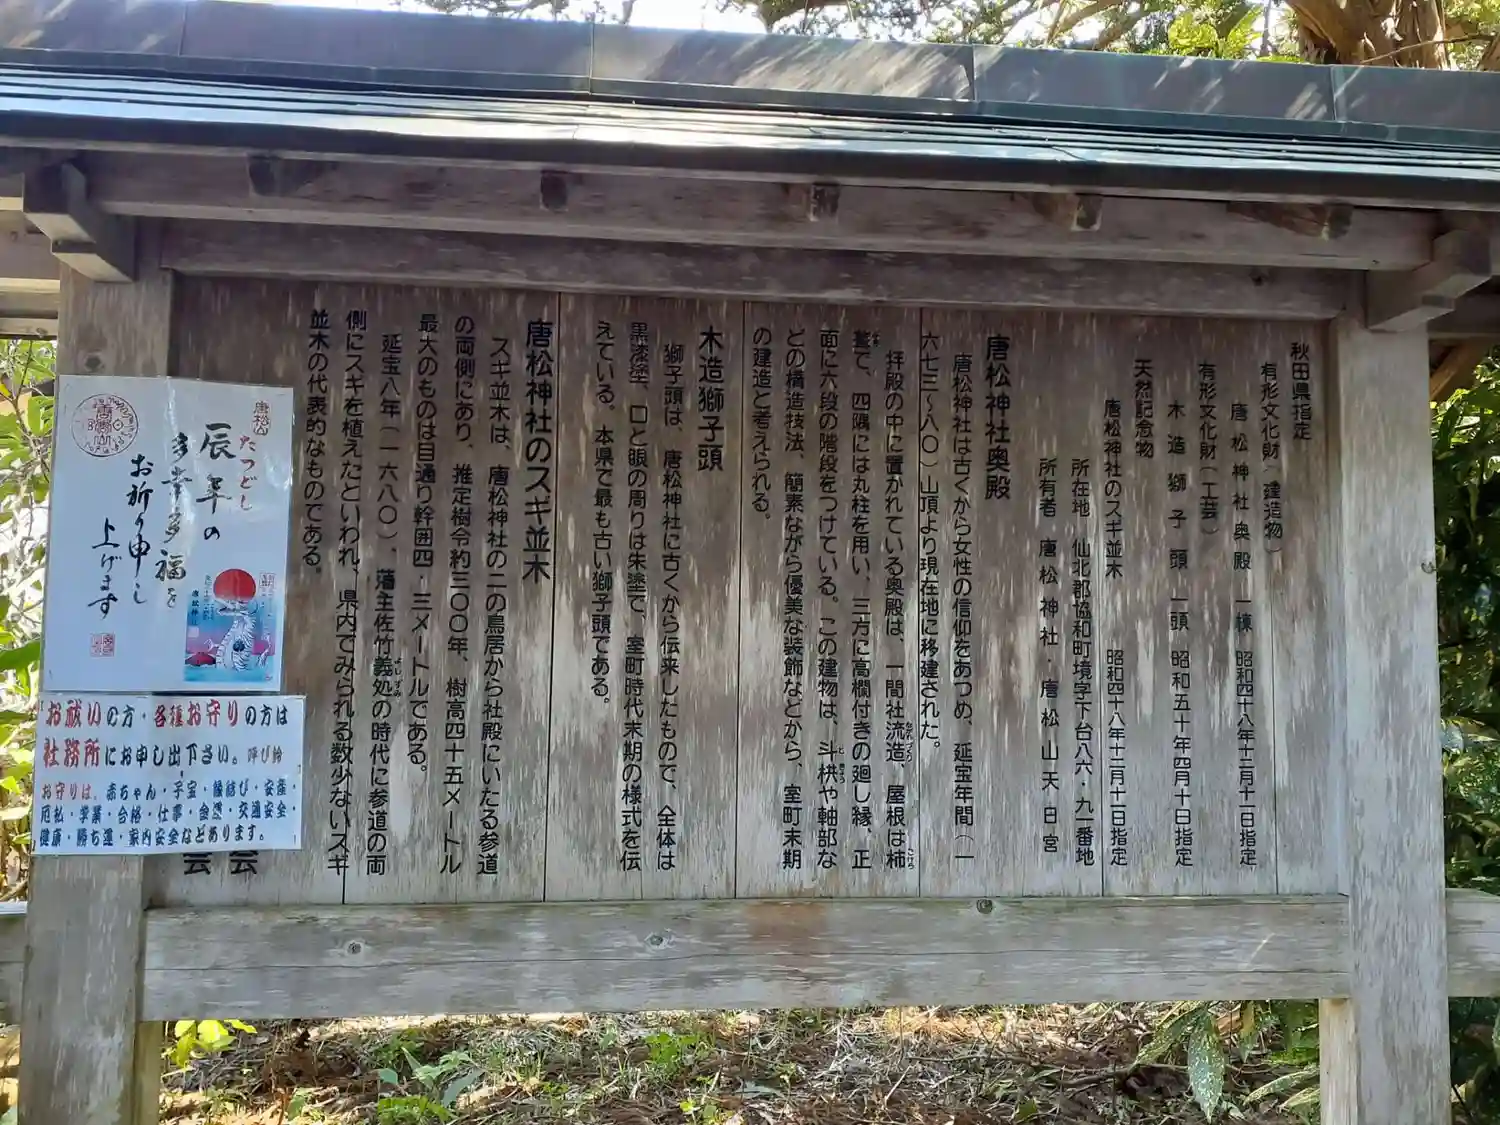 秋田県指定
有形文化財（建造物）
唐松神社奥殿 一棟 昭和四十八年十二月十一日指定
有形文化財（工芸）
木造獅子頭 一頭 昭和五十年四月十日指定
天然記念物
唐松神社のスギ並木 昭和四十八年十二月十一日指定
所在地 仙北郡協和町境字下台八六・九一番地
所有者 唐松神社・唐松山天日宮
唐松神社奥殿
唐松神社は古くから女性の信仰をあつめ、延宝年間（一
六七三～八〇）山頂より現在地に移建された。
拝殿の中に置かれている奥殿は、一間社流造、屋根は柿
葺で、四隅には丸柱を用い、三方に高欄付きの廻し縁、正
面に六段の階段をつけている。この建物は、斗栱や軸部な
どの構造技法、簡素ながら優美な装飾などから、室町末期
の建造と考えられる。
木造獅子頭
獅子頭は、唐松神社に古くから伝来したもので、全体は
黒漆塗、口と眼の周りは朱塗で、室町時代末期の様式を伝
えている。本県で最も古い獅子頭である。
唐松神社のスギ並木
スギ並木は、唐松神社の二の鳥居から社殿にいたる参道
の両側にあり、推定樹令約三〇〇年、樹高四十五メートル
最大のものは目通り幹囲四・三メートルである。
延宝八年（一六八〇）、藩主佐竹義処の時代に参道の両
側にスギを植えたといわれ、県内でみられる数少ないスギ
並木の代表的なものである。
会
会
唐松山
たつどし
辰年の
多幸多福を
お祈り申し
上げます
お祓いの方・各種お守りの方は
社務所にお申し出下さい。呼び鈴
お守りは、赤ちゃん・子宝・縁結び・安産・
厄払・学業・合格・仕事・金運・交通安全・
健康・勝ち運・家内安全などあります。